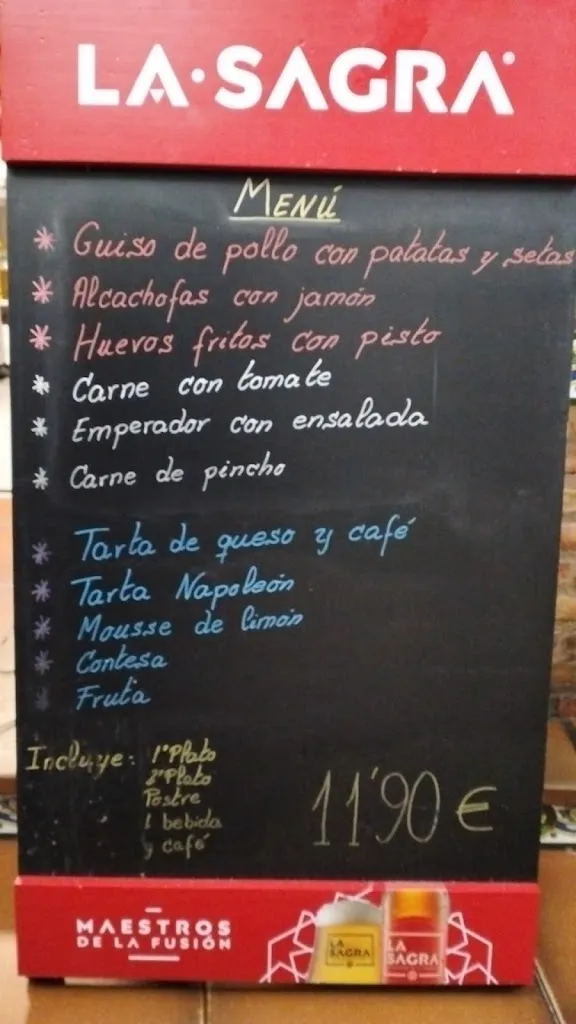 LA·SAGRA
MENÚ
* Guiso de pollo con patatas y setas
* Alcachofas con jamón
* Huevos fritos con pisto
* Carne con tomate
* Emperador con ensalada
* Carne de pincho
* Tarta de queso y café
* Tarta Napoleón
* Mousse de limón
* Contesa
* Fruta
Incluye: 1º Plato
2º Plato
Postre
1 bebida
y café
11'90 €
MAESTROS
DE LA FUSIÓN
LA
SAGRA
LA
SAGRA